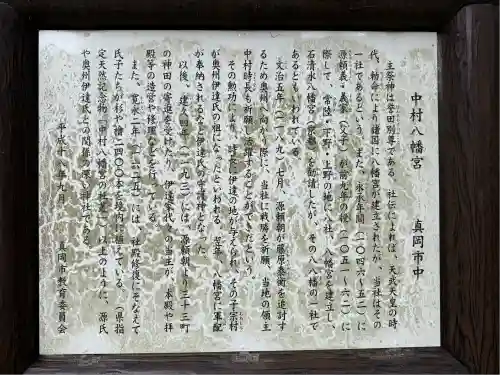 中村八幡宮 真岡市中
主祭神は誉田別尊である。社伝によれば、天武天皇の時
代、勅命により諸国に八幡宮が建立されたが、当社はその
一社であるという。また、永承年間(一〇四六~五二)に
源頼義・義家(父子)が前九年の役(一〇五一~六二)に
際して、常陸・下野・上野の地に八社、八幡宮を建立し、
石清水八幡宮(京都)を勧請したが、その八八幡の一社で
あるともいわれている。
文治五年(一一八九)七月、源頼朝が藤原泰衡を追討す
るため奥州へ向かう際に、当社に戦勝を祈願、当地の領主
中村時長も祈願し活躍することができたという。
その勲功により、時長に伊達の地が与えられ、その子宗村
が奥州伊達氏の祖になったといわれる。翌年、八幡宮に軍配
が奉納されるなど伊達氏の守護神となった。
以後、建久四年(一一九三)には、源頼朝より三十三町
の神田の寄進を受けたり、伊達家代々の藩主が、本殿や拝
殿等の造営や修理などを行っている。
また、寛永二年(一六二五)には、社殿修復にそなえて
氏子たちが杉や檜二四〇〇本を境内に植えている。(県指
定天然記念物「中村八幡宮の社叢」)以上のように、源氏
や奥州伊達氏との関係の深い神社である。
平成十一年九月 真岡市教育委員会